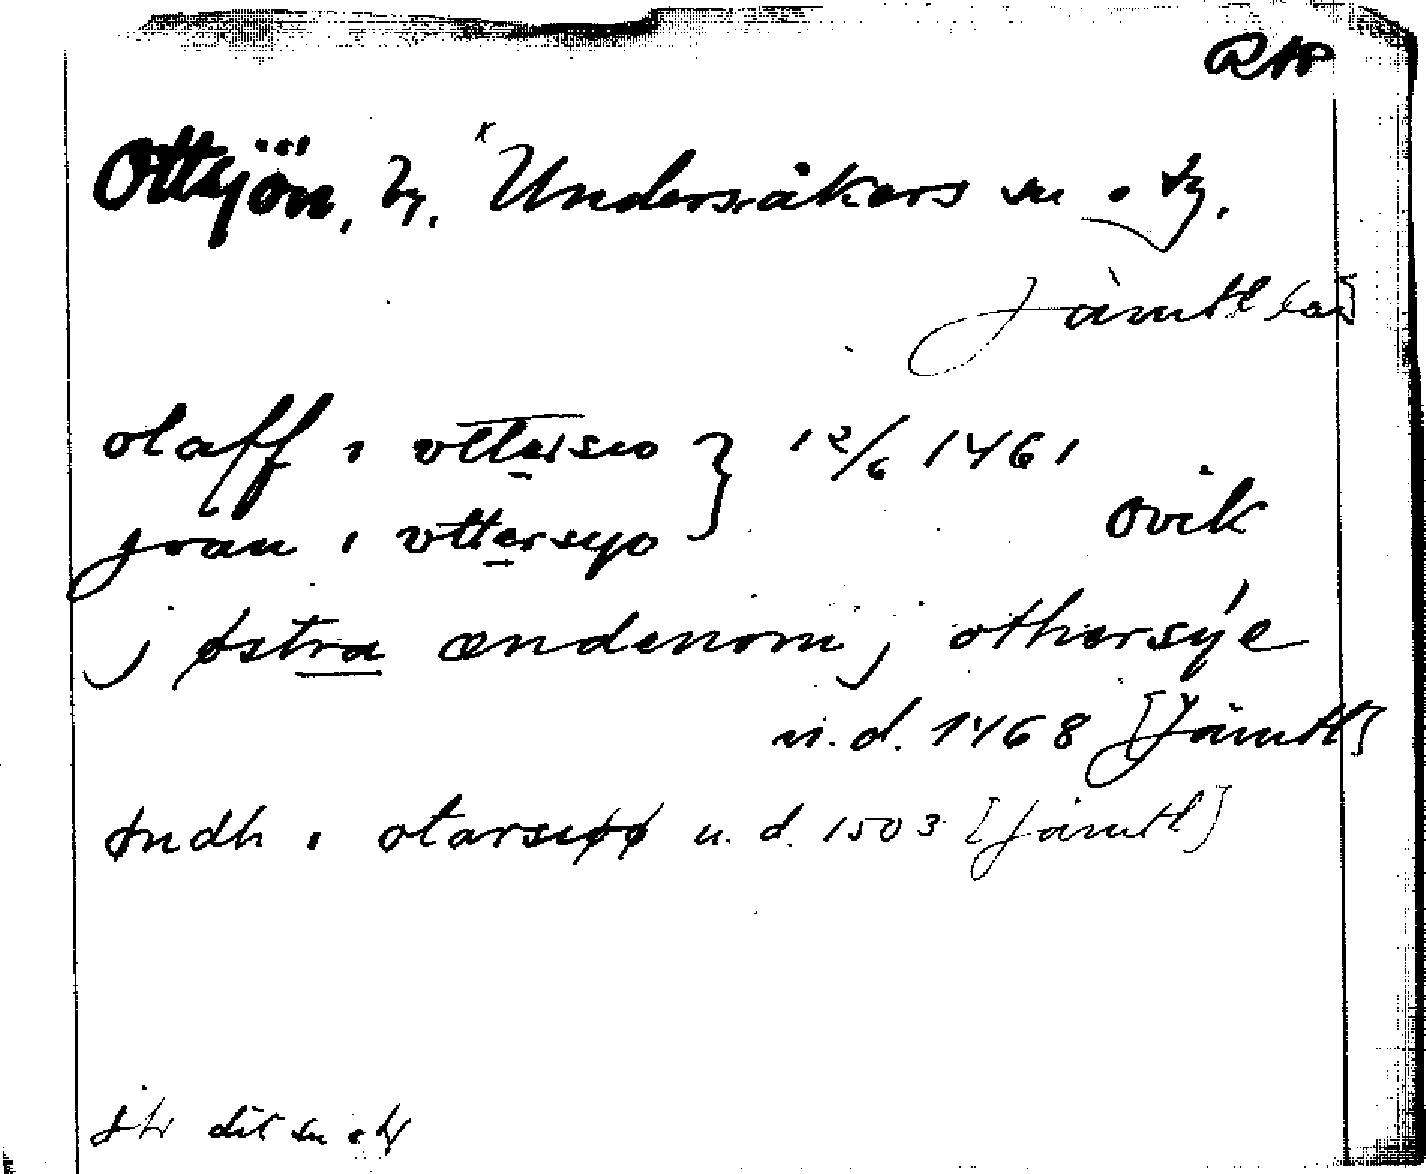 RAP
Ottsjön, by, Undersåkers sn o tg.
Jämtl
olaff i vttersio } 12/6 1461
jwan i vttersyo
Ovik
j østra ændenom j othersýe
u. d. 1468 [Jämtl]
Øndh i otarsiøø u. d. 1503 [Jämtl]